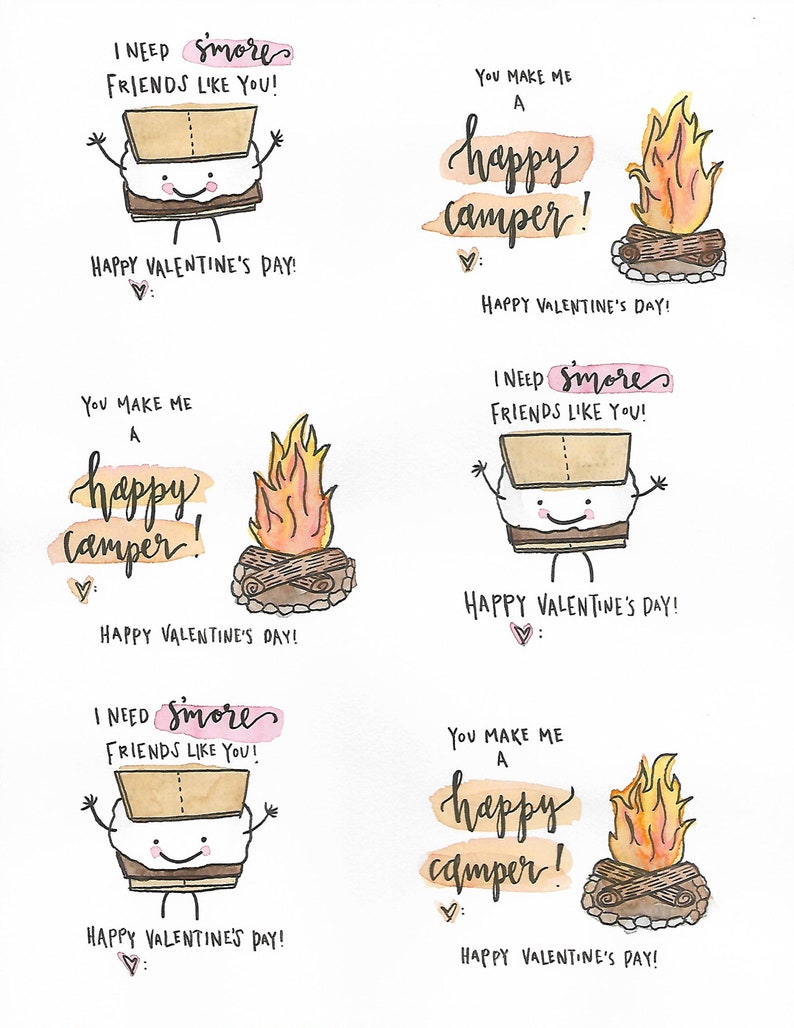 I NEED s'more
FRIENDS LIKE YOU!
HAPPY VALENTINE'S DAY!
:
YOU MAKE ME
A
happy
camper!
:
HAPPY VALENTINE'S DAY!
YOU MAKE ME
A
happy
camper!
:
HAPPY VALENTINE'S DAY!
I NEED s'more
FRIENDS LIKE YOU!
HAPPY VALENTINE'S DAY!
:
I NEED s'more
FRIENDS LIKE YOU!
HAPPY VALENTINE'S DAY!
:
YOU MAKE ME
A
happy
camper!
:
HAPPY VALENTINE'S DAY!